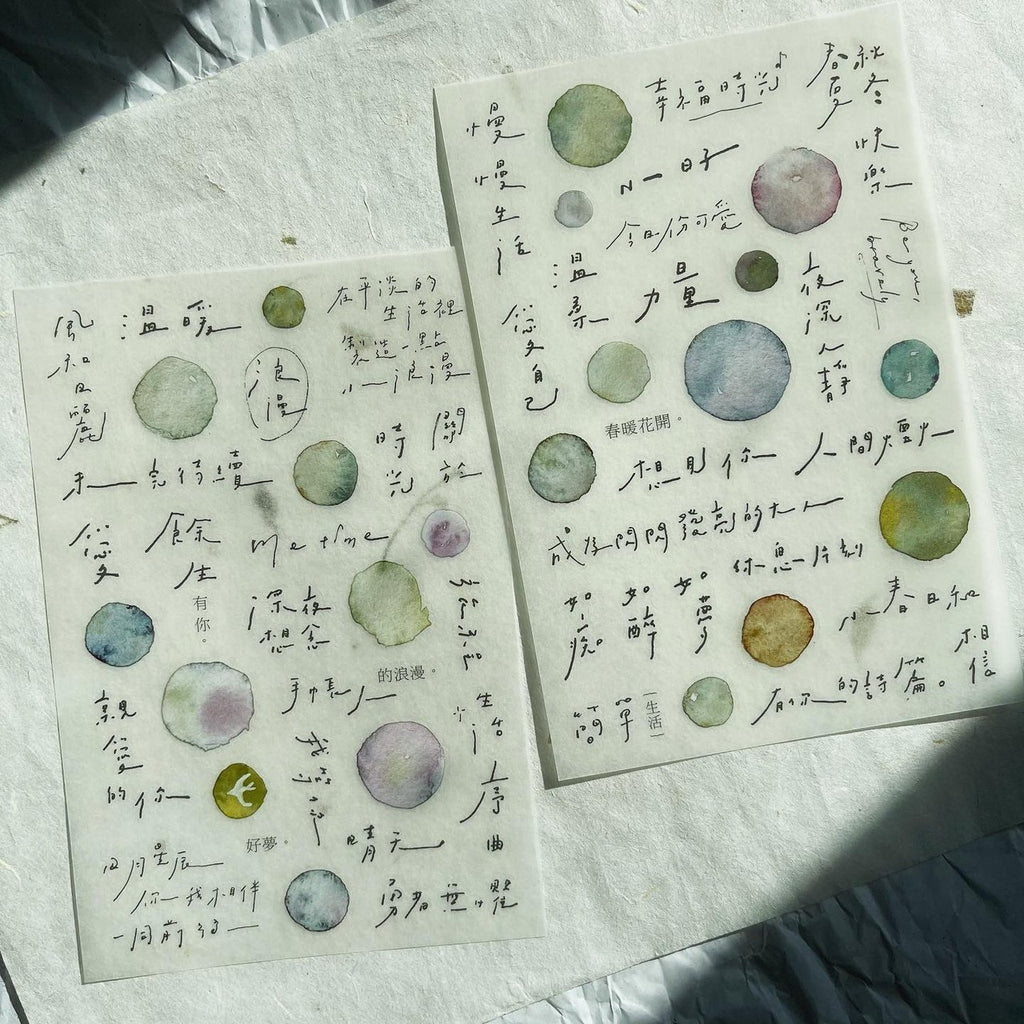 風和日麗
溫暖
在平淡的
生活裡
製造一點
小浪漫
浪漫
未完待續
時光
關於
愛
餘生
有你。
me time
深夜
想念
的浪漫。
親愛的你
手帳人
生活序曲
我等你
好夢。
晴天
日月星辰
你我相伴
一同前行
勇者無懼
慢慢生活
幸福時光
春夏秋冬
快樂
小日子
今日份可愛
Be your,
bravely
溫柔
力量
夜深人靜
愛自己
春暖花開。
想見你
人間煙火
成為閃閃發亮的大人
休息一片刻
如痴。
如醉
如夢
小春日和
相信
簡單
生活
有你的詩篇。